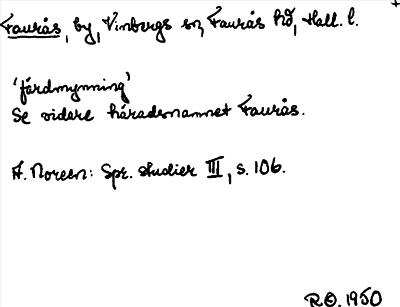 Faurås, by, Vinbergs sn, Faurås hd, Hall. l. +
'färdmynning'
Se vidare häradsnamnet Faurås.
A. Noreen: Spr. studier III, s. 106.
R.O. 1950